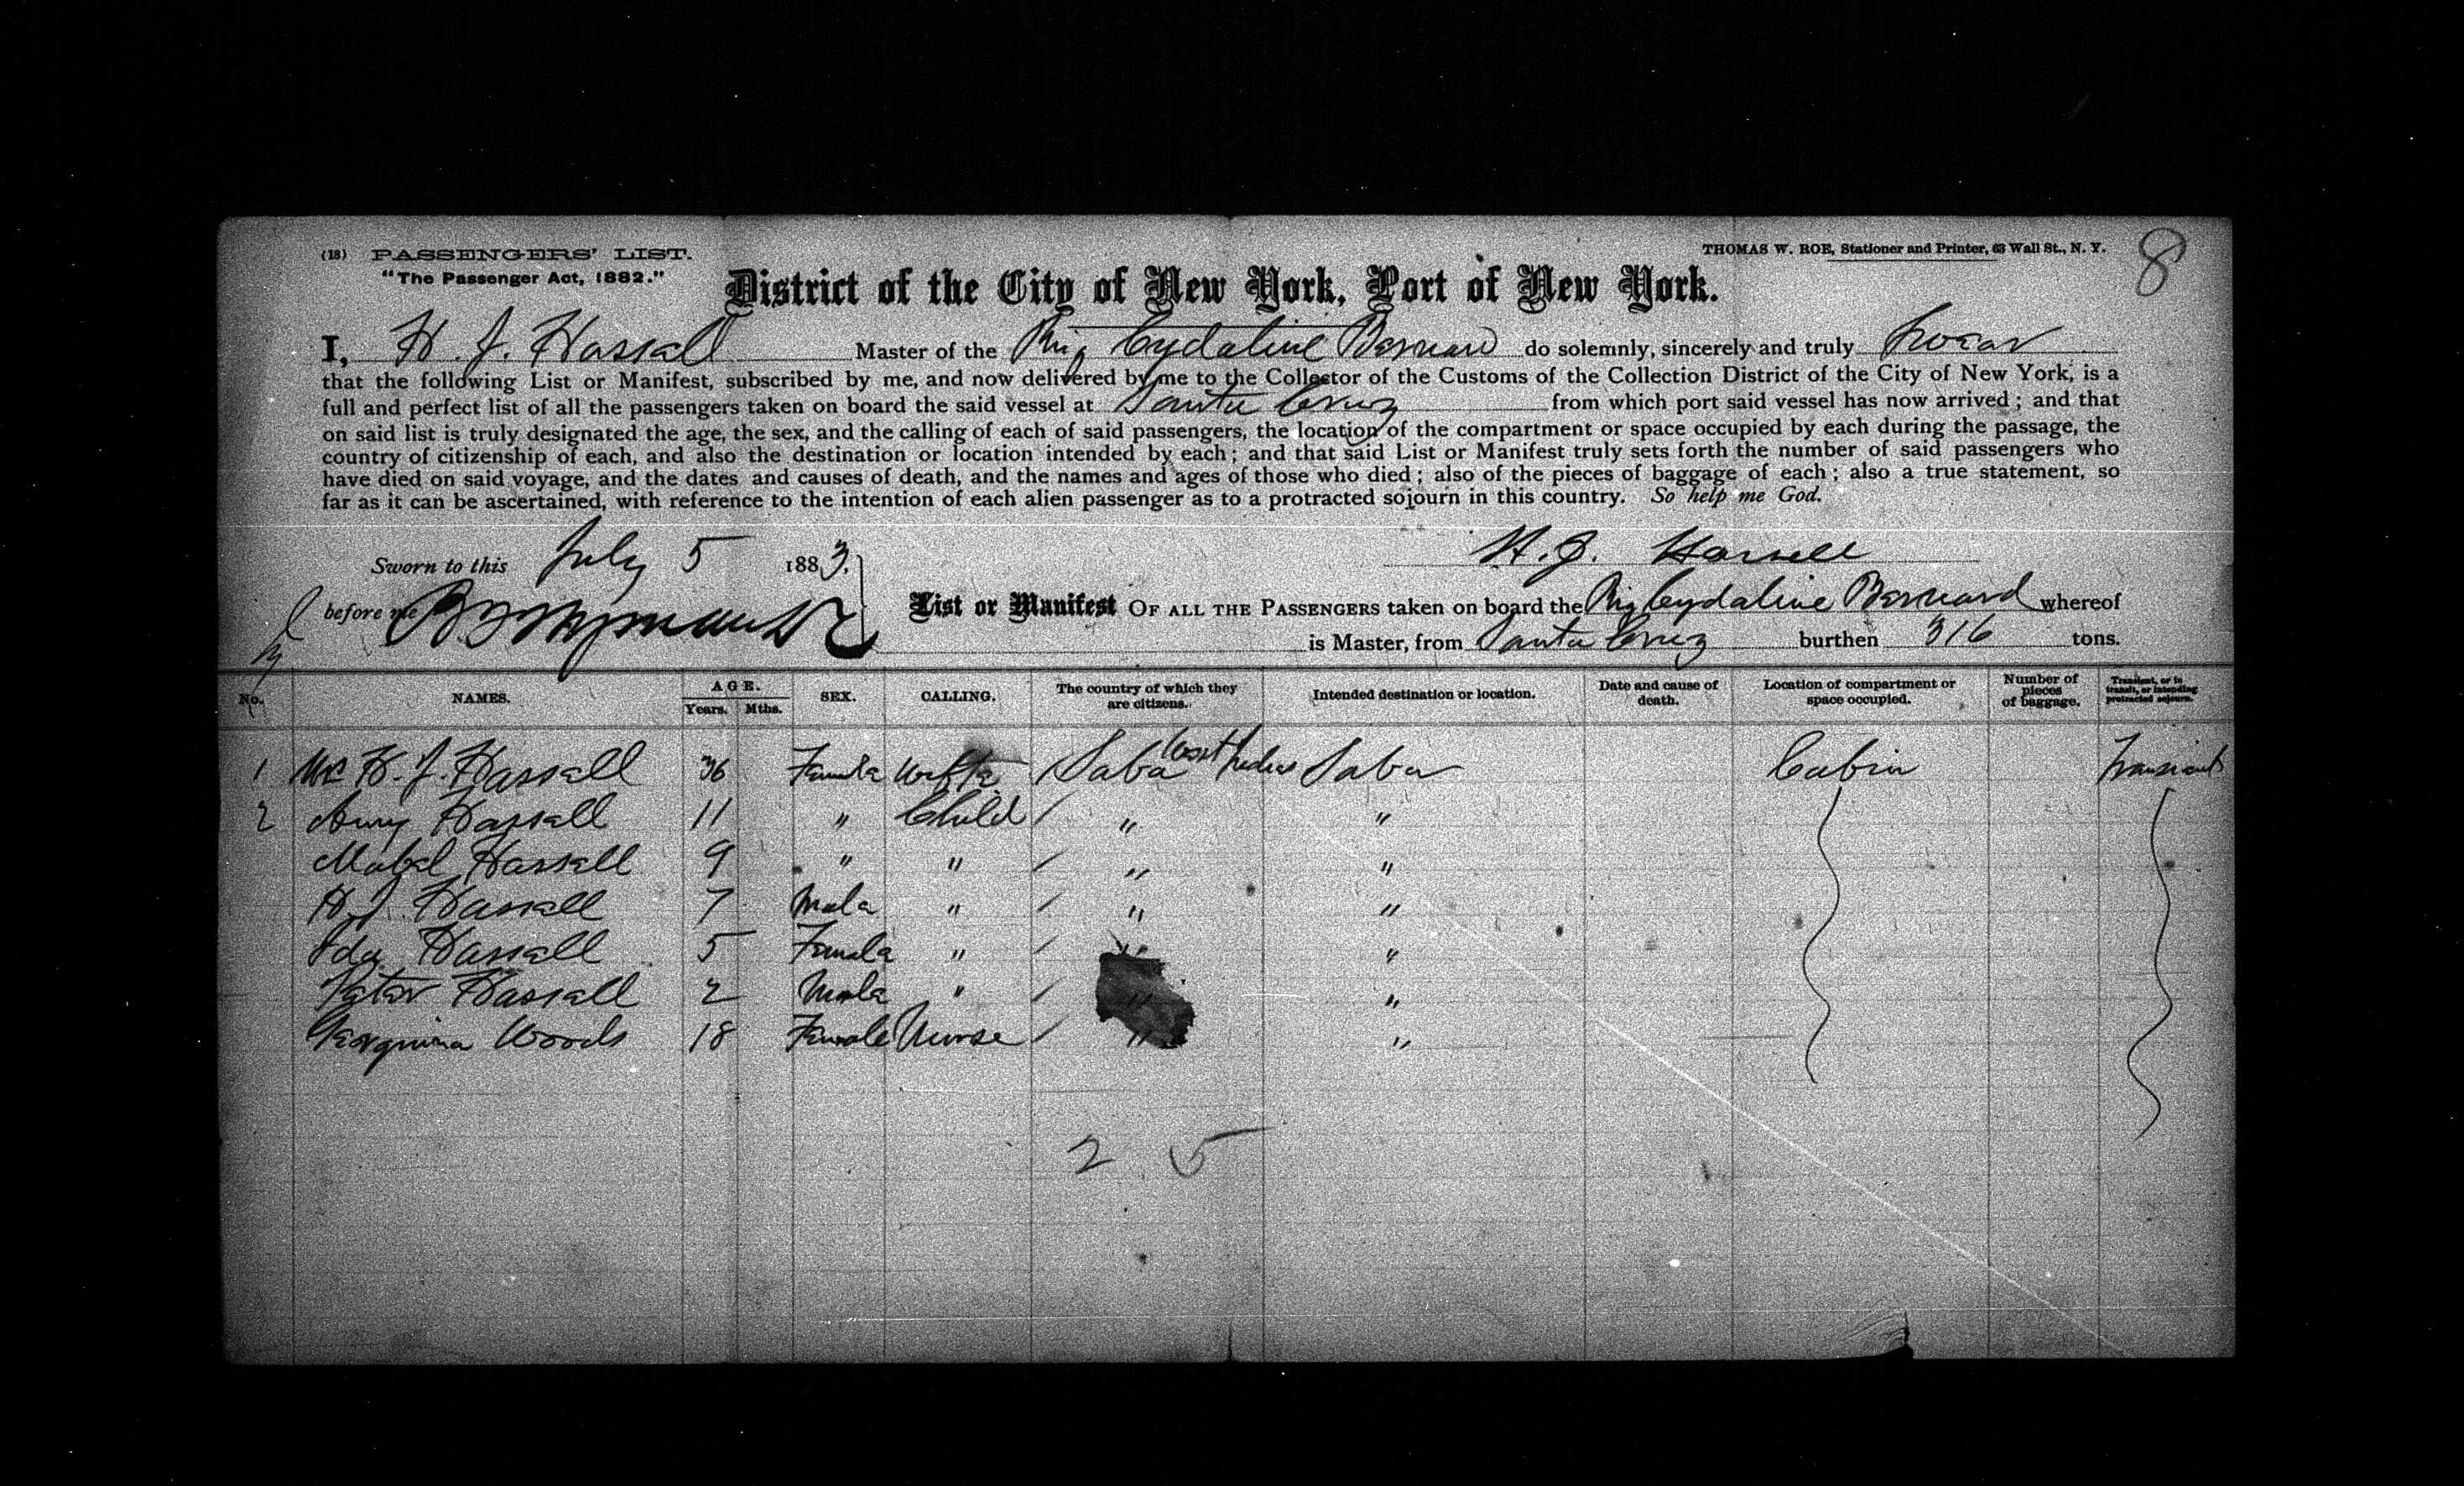 (18) PASSENGERS' LIST.
"The Passenger Act, 1882."
THOMAS W. ROE, Stationer and Printer, 63 Wall St., N. Y.
8
District of the City of New York, Port of New York.
I, H. J. Hassall Master of the Brig Cydaline Bernard do solemnly, sincerely and truly swear
that the following List or Manifest, subscribed by me, and now delivered by me to the Collector of the Customs of the Collection District of the City of New York, is a
full and perfect list of all the passengers taken on board the said vessel at Santa Cruz from which port said vessel has now arrived; and that
on said list is truly designated the age, the sex, and the calling of each of said passengers, the location of the compartment or space occupied by each during the passage, the
country of citizenship of each, and also the destination or location intended by each; and that said List or Manifest truly sets forth the number of said passengers who
have died on said voyage, and the dates and causes of death, and the names and ages of those who died; also of the pieces of baggage of each; also a true statement, so
far as it can be ascertained, with reference to the intention of each alien passenger as to a protracted sojourn in this country. So help me God.
Sworn to this July 5 1883.
H. J. Hassell
before me
List or Manifest OF ALL THE PASSENGERS taken on board the Brig Cydaline Bernard whereof
is Master, from Santa Cruz burthen 316 tons.
No. NAMES. AGE. Years. Mths. SEX. CALLING. The country of which they are citizens. Intended destination or location. Date and cause of death. Location of compartment or space occupied. Number of pieces of baggage. Transient, or in transit, or intending protracted sojourn.
1 H. J. Hassall 36 Female Saba West Indies Saba Cabin Transient
2 Amy Hassall 11 " Child " "
Mabel Hassall 9 " " " "
H. J. Hassall 7 Male " " "
Ida Hassall 5 Female " " "
Peter Hassall 2 Male " " "
Georgnina Woods 18 Female Nurse " "
2 5